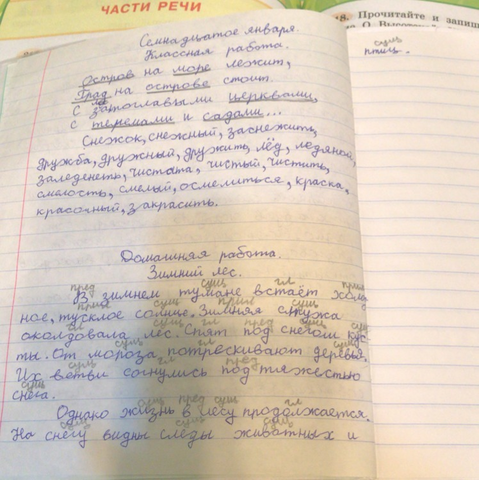 ЧАСТИ РЕЧИ
8. Прочитайте и запиш
Семнадцатое января.
Классная работа.
Остров на море лежит,
Град на острове стоит.
С златоглавыми церквами,
с теремами и садами...
Снежок, снежный, заснежить,
дружба, дружный, дружить, лёд, ледяной,
заледенеть, чистота, чистый, чистить,
смелость, смелый, осмелиться, краска,
красочный, закрасить.
Домашняя работа.
Зимний лес.
пред сущ гл прил
В зимнем тумане встаёт холод
прил сущ прил сущ
ное, тусклое солнце. Зимняя стужа
гл сущ гл пред сущ
околдовала лес. Спят под снегом кус
ты. От мороза потрескивают деревья.
сущ гл пред
Их ветви согнулись под тяжестью
сущ
снега.
сущ пред сущ гл
Однако жизнь в лесу продолжается.
сущ сущ сущ
На снегу видны следы животных и
сущ
птиц.